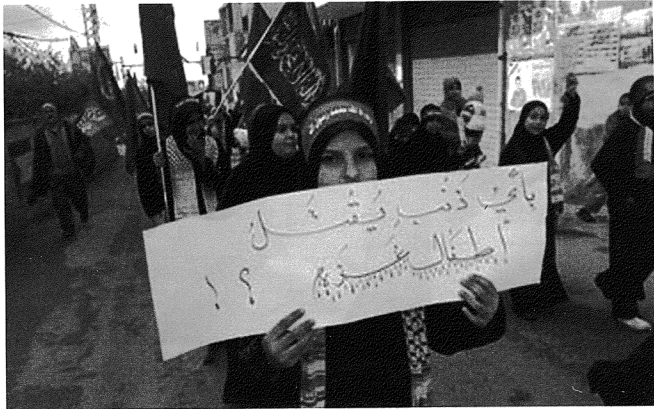 بأيِّ ذَنبٍ يُقْتَلُ
أطفال غَزّة ؟ !